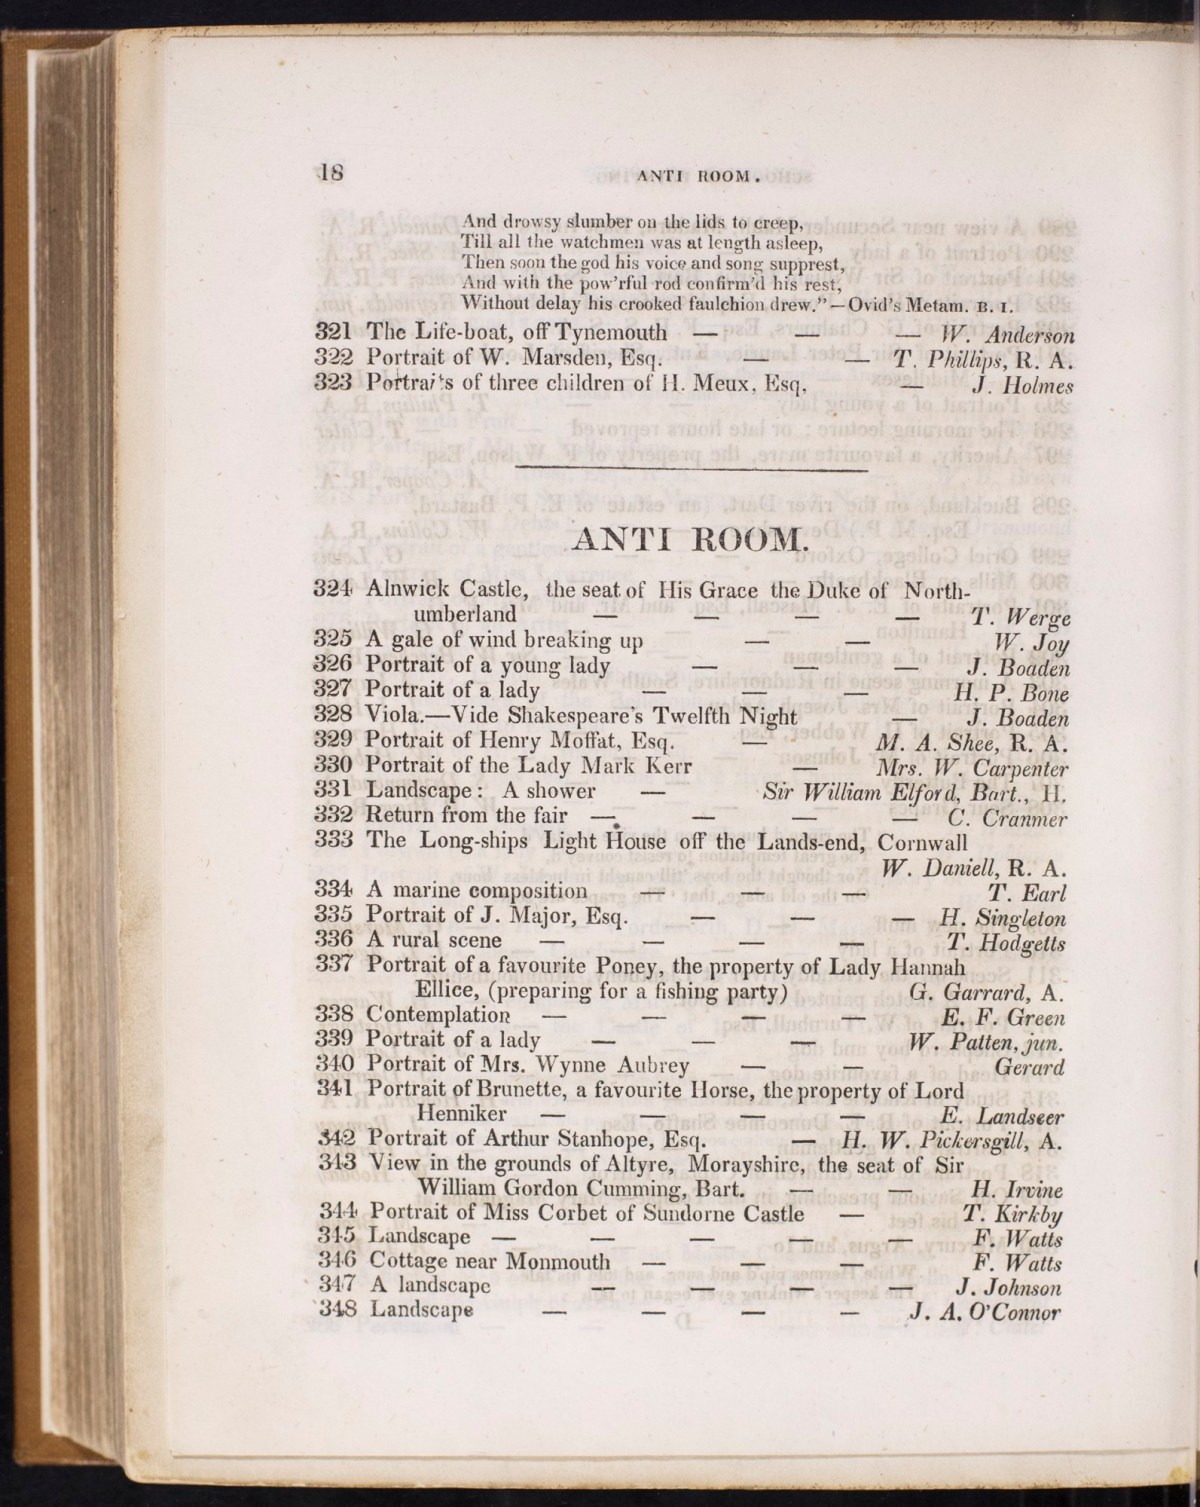 18 ANTI ROOM.
And drowsy slumber on the lids to creep,
Till all the watchmen was at length asleep,
Then soon the god his voice and song supprest,
And with the pow'rful rod confirm'd his rest,
Without delay his crooked faulchion drew."—Ovid's Metam. B. I.
321 The Life-boat, off Tynemouth — — — W. Anderson
322 Portrait of W. Marsden, Esq. — — T. Phillips, R. A.
323 Portraits of three children of H. Meux, Esq. — J. Holmes
ANTI ROOM.
324 Alnwick Castle, the seat of His Grace the Duke of North-
umberland — — — — T. Werge
325 A gale of wind breaking up — — W. Joy
326 Portrait of a young lady — — — J. Boaden
327 Portrait of a lady — — — H. P. Bone
328 Viola.—Vide Shakespeare's Twelfth Night — J. Boaden
329 Portrait of Henry Moffat, Esq. — M. A. Shee, R. A.
330 Portrait of the Lady Mark Kerr — Mrs. W. Carpenter
331 Landscape: A shower — Sir William Elford, Bart., H.
332 Return from the fair — — — — C. Cranmer
333 The Long-ships Light House off the Lands-end, Cornwall
W. Daniell, R. A.
334 A marine composition — — — T. Earl
335 Portrait of J. Major, Esq. — — — H. Singleton
336 A rural scene — — — — T. Hodgetts
337 Portrait of a favourite Poney, the property of Lady Hannah
Ellice, (preparing for a fishing party) G. Garrard, A.
338 Contemplation — — — — E. F. Green
339 Portrait of a lady — — — W. Patten, jun.
340 Portrait of Mrs. Wynne Aubrey — — Gerard
341 Portrait of Brunette, a favourite Horse, the property of Lord
Henniker — — — — E. Landseer
342 Portrait of Arthur Stanhope, Esq. — H. W. Pickersgill, A.
343 View in the grounds of Altyre, Morayshire, the seat of Sir
William Gordon Cumming, Bart. — — H. Irvine
344 Portrait of Miss Corbet of Sundorne Castle — T. Kirkby
345 Landscape — — — — — F. Watts
346 Cottage near Monmouth — — — F. Watts
347 A landscape — — — — J. Johnson
348 Landscape — — — — J. A. O'Connor